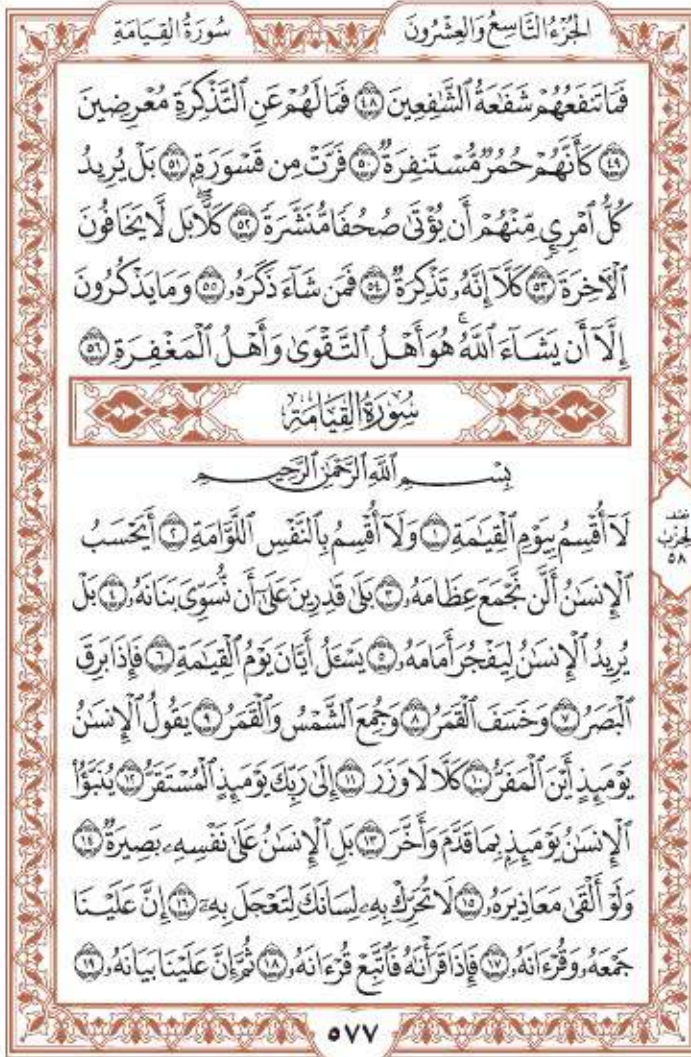 سُورَةُ القِيَامَةِ
الجُزْءُ التَّاسِعُ وَالعِشْرُونَ
فَمَا تَنفَعُهُمْ شَفَٰعَةُ ٱلشَّٰفِعِينَ ٤٨ فَمَا لَهُمْ عَنِ ٱلتَّذْكِرَةِ مُعْرِضِينَ
٤٩ كَأَنَّهُمْ حُمُرٌ مُّسْتَنفِرَةٌ ٥٠ فَرَّتْ مِن قَسْوَرَةٍ ٥١ بَلْ يُرِيدُ
كُلُّ ٱمْرِئٍ مِّنْهُمْ أَن يُؤْتَىٰ صُحُفًا مُّنَشَّرَةً ٥٢ كَلَّا بَل لَّا يَخَافُونَ
ٱلْأَخِرَةَ ٥٣ كَلَّآ إِنَّهُۥ تَذْكِرَةٌ ٥٤ فَمَن شَآءَ ذَكَرَهُۥ ٥٥ وَمَا يَذْكُرُونَ
إِلَّآ أَن يَشَآءَ ٱللَّهُ هُوَ أَهْلُ ٱلتَّقْوَىٰ وَأَهْلُ ٱلْمَغْفِرَةِ ٥٦
سُورَةُ القِيَامَةِ
بِسْمِ ٱللَّهِ ٱلرَّحْمَٰنِ ٱلرَّحِيمِ
لَآ أُقْسِمُ بِيَوْمِ ٱلْقِيَٰمَةِ ١ وَلَآ أُقْسِمُ بِٱلنَّفْسِ ٱللَّوَّامَةِ ٢ أَيَحْسَبُ
ٱلْإِنسَٰنُ أَلَّن نَّجْمَعَ عِظَامَهُۥ ٣ بَلَىٰ قَٰدِرِينَ عَلَىٰٓ أَن نُّسَوِّيَ بَنَانَهُۥ ٤ بَلْ
يُرِيدُ ٱلْإِنسَٰنُ لِيَفْجُرَ أَمَامَهُۥ ٥ يَسْـَٔلُ أَيَّانَ يَوْمُ ٱلْقِيَٰمَةِ ٦ فَإِذَا بَرِقَ
ٱلْبَصَرُ ٧ وَخَسَفَ ٱلْقَمَرُ ٨ وَجُمِعَ ٱلشَّمْسُ وَٱلْقَمَرُ ٩ يَقُولُ ٱلْإِنسَٰنُ
يَوْمَئِذٍ أَيْنَ ٱلْمَفَرُّ ١٠ كَلَّا لَا وَزَرَ ١١ إِلَىٰ رَبِّكَ يَوْمَئِذٍ ٱلْمُسْتَقَرُّ ١٢ يُنَبَّؤُا۟
ٱلْإِنسَٰنُ يَوْمَئِذٍۭ بِمَا قَدَّمَ وَأَخَّرَ ١٣ بَلِ ٱلْإِنسَٰنُ عَلَىٰ نَفْسِهِۦ بَصِيرَةٌ ١٤
وَلَوْ أَلْقَىٰ مَعَاذِيرَهُۥ ١٥ لَا تُحَرِّكْ بِهِۦ لِسَانَكَ لِتَعْجَلَ بِهِۦٓ ١٦ إِنَّ عَلَيْنَا
جَمْعَهُۥ وَقُرْءَانَهُۥ ١٧ فَإِذَا قَرَأْنَٰهُ فَٱتَّبِعْ قُرْءَانَهُۥ ١٨ ثُمَّ إِنَّ عَلَيْنَا بَيَانَهُۥ ١٩
نصف
الحزب
٥٨
٥٧٧